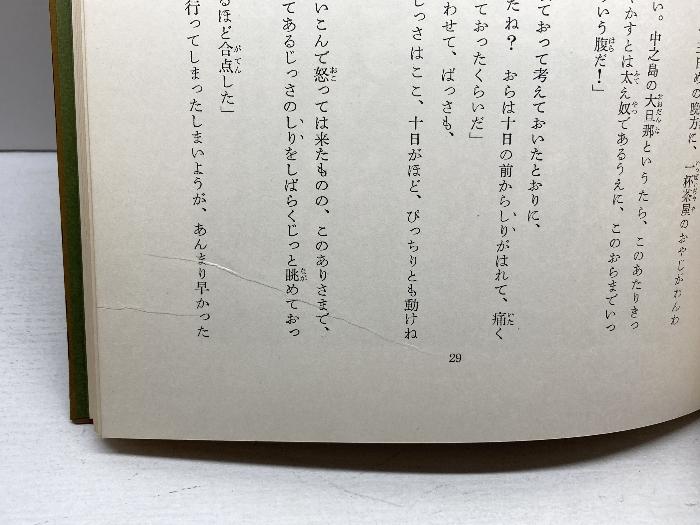 三日めの晩方に、一杯茶屋のおやじがわんわ
い。中之島の大旦那というたら、このあたりきっ
やかすとは太え奴であるうえに、このおらまでいっ
いう腹だ！」
ておって考えておいたとおりに、
たね？　おらは十日の前からしりがはれて、痛く
ておったくらいだ」
わせて、ばっさも、
じっさはここ、十日がほど、ぴっちりとも動けね
いこんで怒っては来たものの、このありさまで、
てあるじっさのしりをしばらくじっと眺めておっ
るほど合点した」
行ってしまったしまいようが、あんまり早かった
29